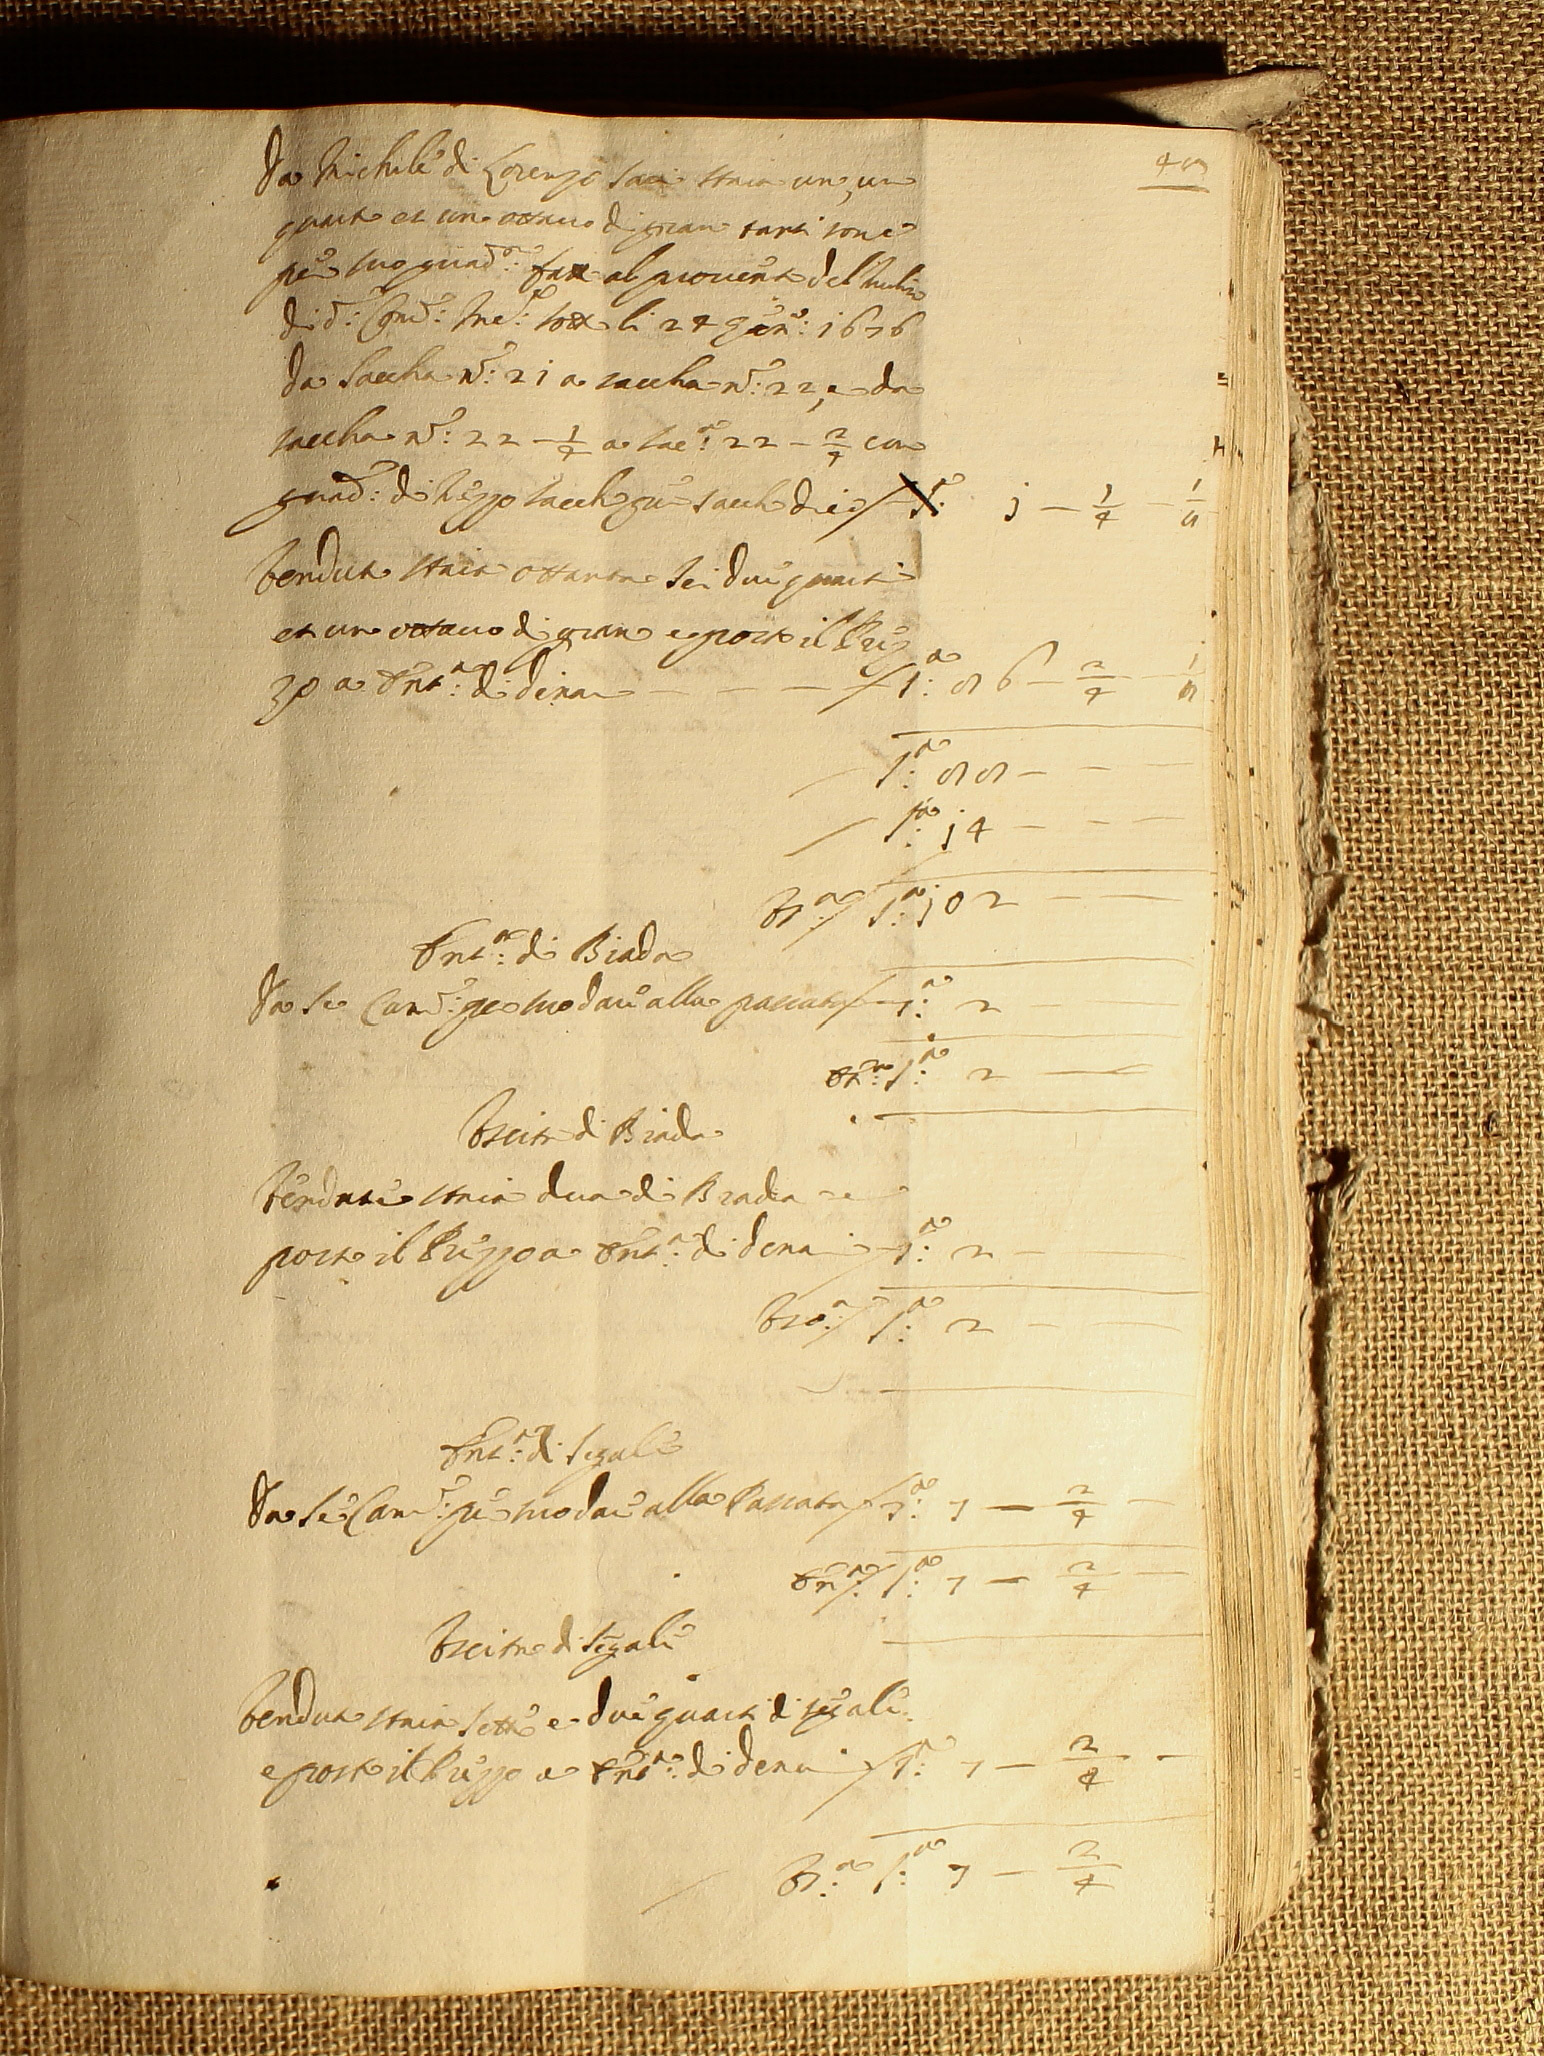 48
Da Michele di Lorenzo Saci staia un, un
quarto et un ottavo di gran tanti sono
per suo guad.o: fatto al provento del Mulin
di d.: Cond.: Me.: sotto li 24 Gen.o: 1676
da Saccha n.: 21 a saccha n.: 22, e da
saccha n.: 22 - 1/4 a sac.a: 22 - 2/4 con
guad.: di mezzo sacch per sacch dieci / S.a: 1 - 1/4 - 1/8
Vendute staia ottanta sei due quarti
et un ottavo di gran e posto il Prez
zo a Ent.a: di denari - - - / S.a: 86 - 2/4 - 1/8
S.a: 88 - - -
S.a: 14 - - -
S.a: 102 - -
Ent.a: di Biada
Da Se Cam.: per suo dare alla passata / S.a: 2 -
S.a: 2 -
Vscita di Biada
Vendute staia dua di Biada e
posto il Prezzo a Ent.a: di denari / S.a: 2 -
S.a: 2 - -
Ent.a: di Segale
Da Se Cam.: per suo dare alla Passata / S.a: 7 - 2/4 -
Ent.a / S.a: 7 - 2/4 -
Vscita di Segale
Vendute staia sette e due quarti di segale
e posto il Prezzo a Ent.a: di denari / S.a: 7 - 2/4 -
S.a: 7 - 2/4